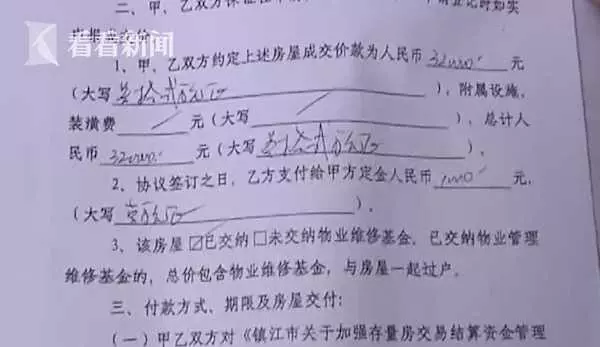 二、甲、乙双方保证在
请登记时如实
看看新闻
1、甲、乙双方约定上述房屋成交价款为人民币 320000 元
(大写 叁拾贰万元正 ),附属设施、
装潢费 / 元(大写 / ),总计人
民币 320000 元(大写 叁拾贰万元正 )。
2、协议签订之日,乙方支付给甲方定金人民币 元,
(大写 )。
3、该房屋☑已交纳☐未交纳物业维修基金,已交纳物业管理
维修基金的,总价包含物业维修基金,与房屋一起过户。
三、付款方式、期限及房屋交付:
(一)甲乙双方对《镇江市关于加强存量房交易结算资金管理